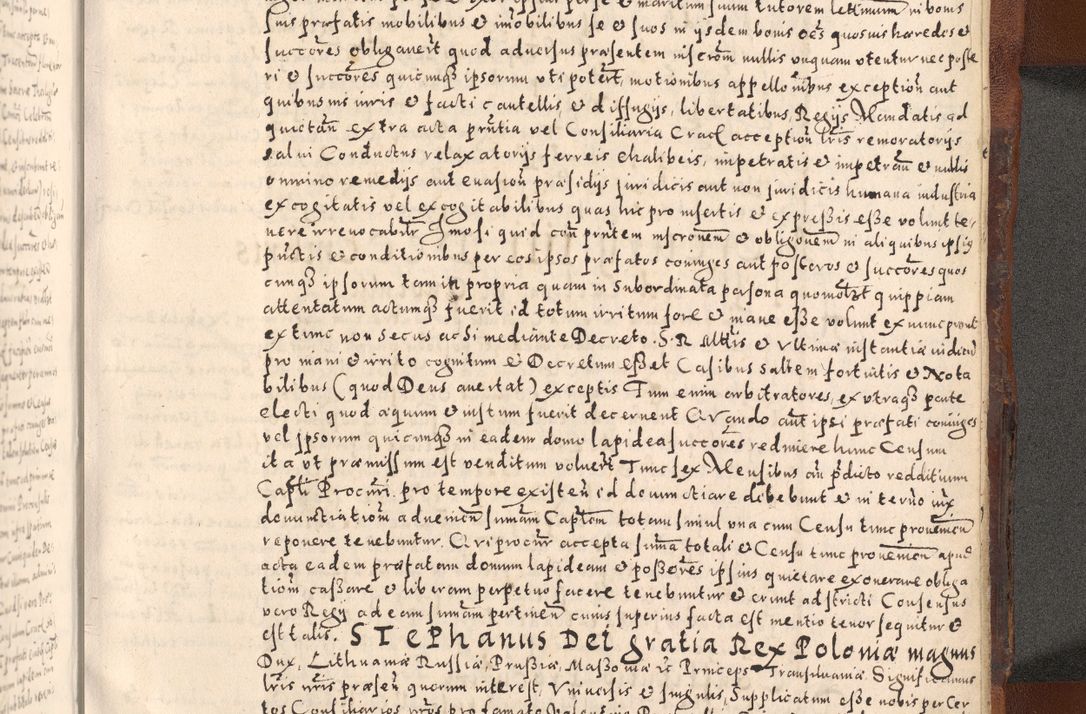 suis præfatis mobilibus et imobilibus se et suos in ijsdem bonis oēs quosuis hæredes et
succōres obligauerit quod aduersus præsentem inscrōm nullis unquam utentur nec poste
ri et succōres quicunqȝ ipsorum uti poterūt, motionibus appellōnibus exceptioñ aut
quibusuis iuris et facti cautellis et diffugijs, libertatibus, Regijs Mandatis ad
quietañ extra acta pñtia vel Consiliaria Cracł acceptioñ lr̄is remoratorijs
salui Conductus relaxatorijs ferreis chalibeis, impetratis et impetrañ et nullis
omnino remedijs aut euasioñ præsidijs juridicis aut non juridicis humana industria
excogitatis vel excogitabilibus quas hic pro insertis et expreßis eße volunt te,
nere irreuocabilr̄ Imo si quid coñ pñtem inscronem et obligōnem in aliquibus ipsis
punctis et conditionibus per eos ipsos præfatos coniuges aut posteros et succōres quos
cunqȝ ipsorum tam in propria quam in subordinata persona quomōlȝt quippiam
attentatum actumqȝ fuerit id totum irritum fore et inane eße volunt ex nunc prout
ex tunc non secus ac si mediante Decreto S. R. Mttis et Vltimæ instantiæ iudicū
pro inani et irrito cognitum et Decretum eßet Casibus saltem fortuitis et Nota
bilibus (quod Deus auertat) exceptis Tum enim arbitratores, ex utraqȝ parte
electi quod æquum et iustum fuerit decernent Quando aut ipsi præfati coniuges
vel ipsorum quicunqȝ in eadem domo lapidea succōres redimere hunc Censum
ita ut præmissum est venditum voluerit Tunc sex Mensibus añ pdicto reddituum
Capłi Procūri, pro tempore existeñ id denunctiare debebunt et in termo iux
denunctiationē adueniēn sumām Capłem totam simul una cum Censu tunc proueniēn
reponere tenebuntur. Qui procūr accepta sumā totali et Censu tunc proueniēn apud
acta eadem præfatam domum lapideam et poßeōres ipsius quietare exonerare obliga
tioñ, caßare et liberam perpetuo facere tenebuntur et erunt adstricti Consensus
vero Regij ad eam sumam pertinēn cuius superius facta est mentio tenor sequitur et
est talis. STEPHANUS Dei gratia Rex Poloniæ magnus
Dux, Lithuaniæ Rußiæ, Prußiæ, Maßouiæ etc Princeps Transiluaniæ. Significamus
lr̄is nr̄is præseñ quorum interest, Vniuersis et singulis, Supplicatum eße nobis per Cer
tos Consiliarios nr̄os pro famato